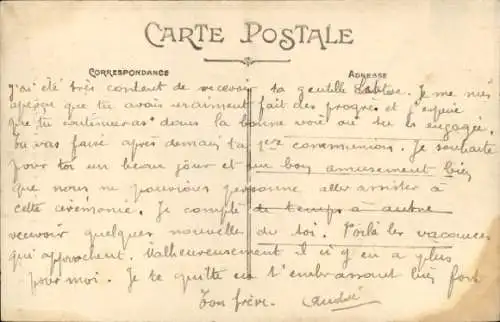 CARTE POSTALE
CORRESPONDANCE
ADRESSE
J'ai été très content de recevoir ta gentille lettre. Je me suis
aperçu que tu avais vraiment fait des progrès et j'espère
que tu continueras dans la bonne voie où tu es engagée.
Tu vas faire après demain ta 1ère communion. Je souhaite
pour toi un beau jour et un bon amusement bien
que nous ne pouvions personne aller assister à
cette cérémonie. Je compte de temps à autre
recevoir quelques nouvelle de toi. Voilà les vacances
qui approchent. Malheureusement il n'y en a plus
pour moi. Je te quitte en t'embrassant bien fort
Ton frère. André